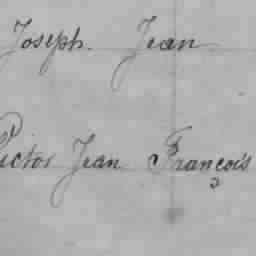 Joseph. Jean
Victor Jean François